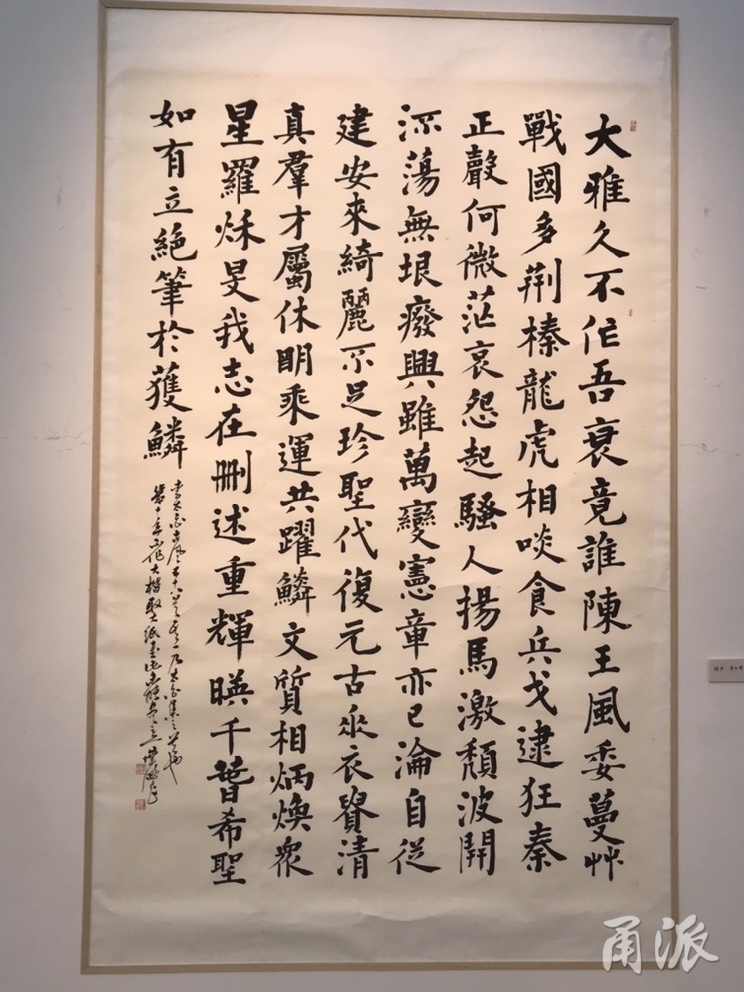 大雅久不作吾衰竟誰陳王風委蔓艸
戰國多荆榛龍虎相啖食兵戈逮狂秦
正聲何微茫哀怨起騷人揚馬激頹波開
流蕩無垠癈興雖萬變憲章亦已淪自從
建安來綺麗不足珍聖代復元古垂衣貴清
真羣才屬休明乘運共躍鱗文質相炳煥衆
星羅秌旻我志在刪述重輝暎千晉希聖
如有立絕筆於獲鱗
李太白古風五十八首之一乃太白集之首篇也
甬派